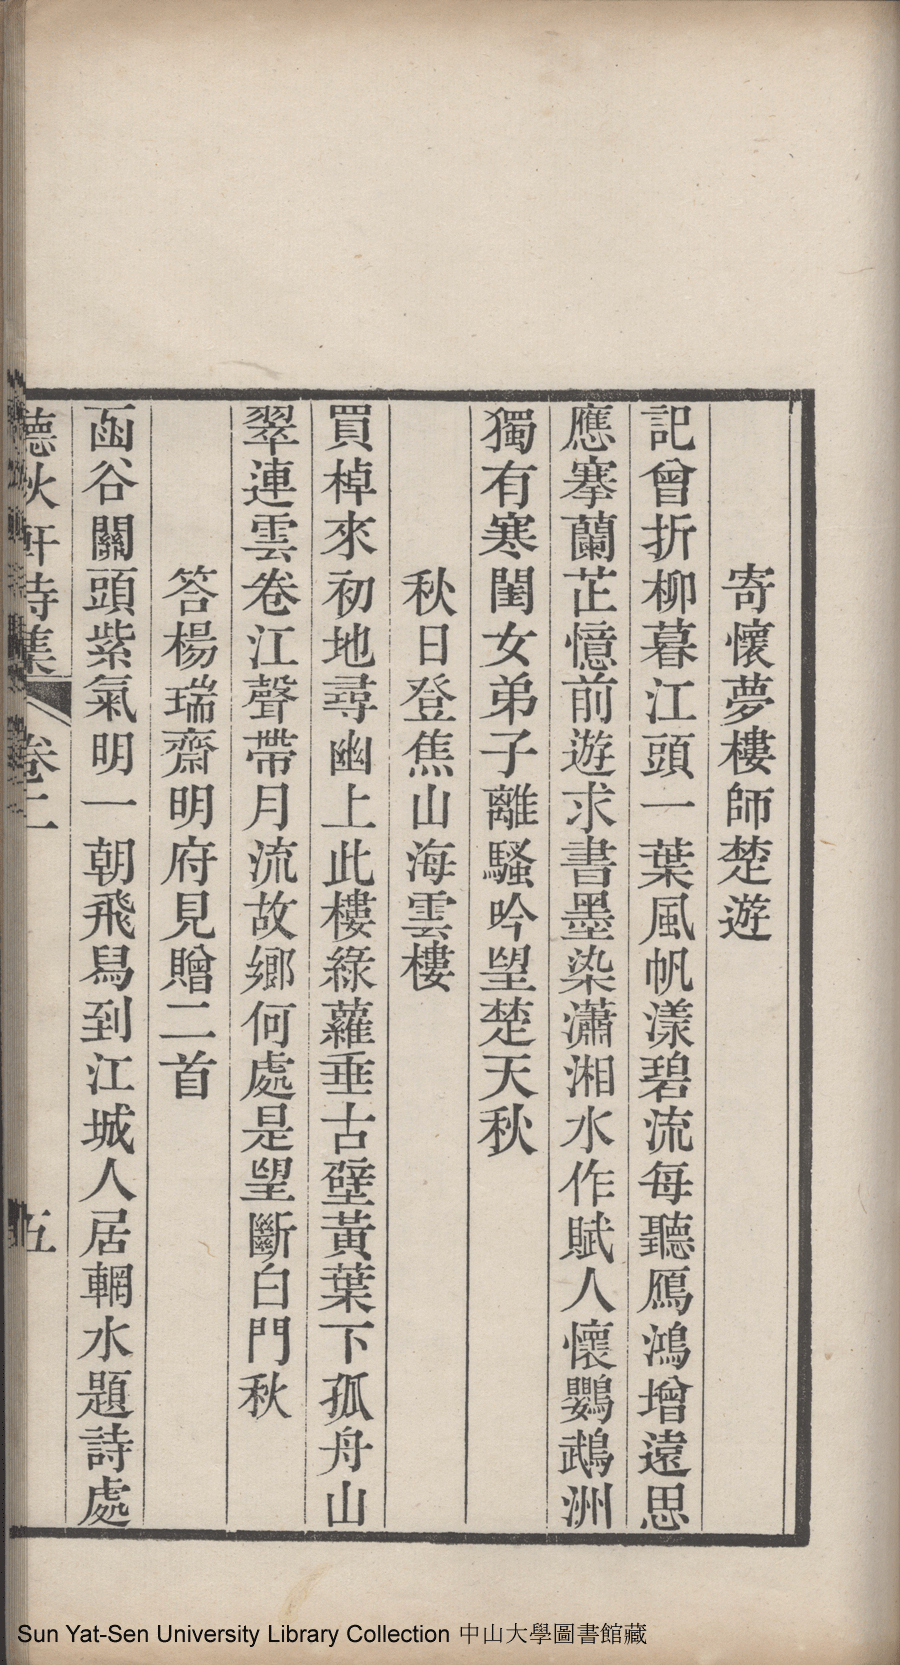 寄懷夢樓師楚遊
記曾折柳暮江頭一葉風帆漾碧流每聽鴈鴻增遠思
應搴蘭芷憶前遊求書墨染瀟湘水作賦人懷鸚鵡洲
獨有寒閨女弟子離騷吟望楚天秋
秋日登焦山海雲樓
買棹來初地尋幽上此樓綠蘿垂古壁黃葉下孤舟山
翠連雲卷江聲帶月流故鄉何處是望斷白門秋
答楊瑞齋明府見贈二首
函谷關頭紫氣明一朝飛舄到江城人居輞水題詩處
聽秋軒詩集 卷二 五
Sun Yat-Sen University Library Collection 中山大學圖書館藏